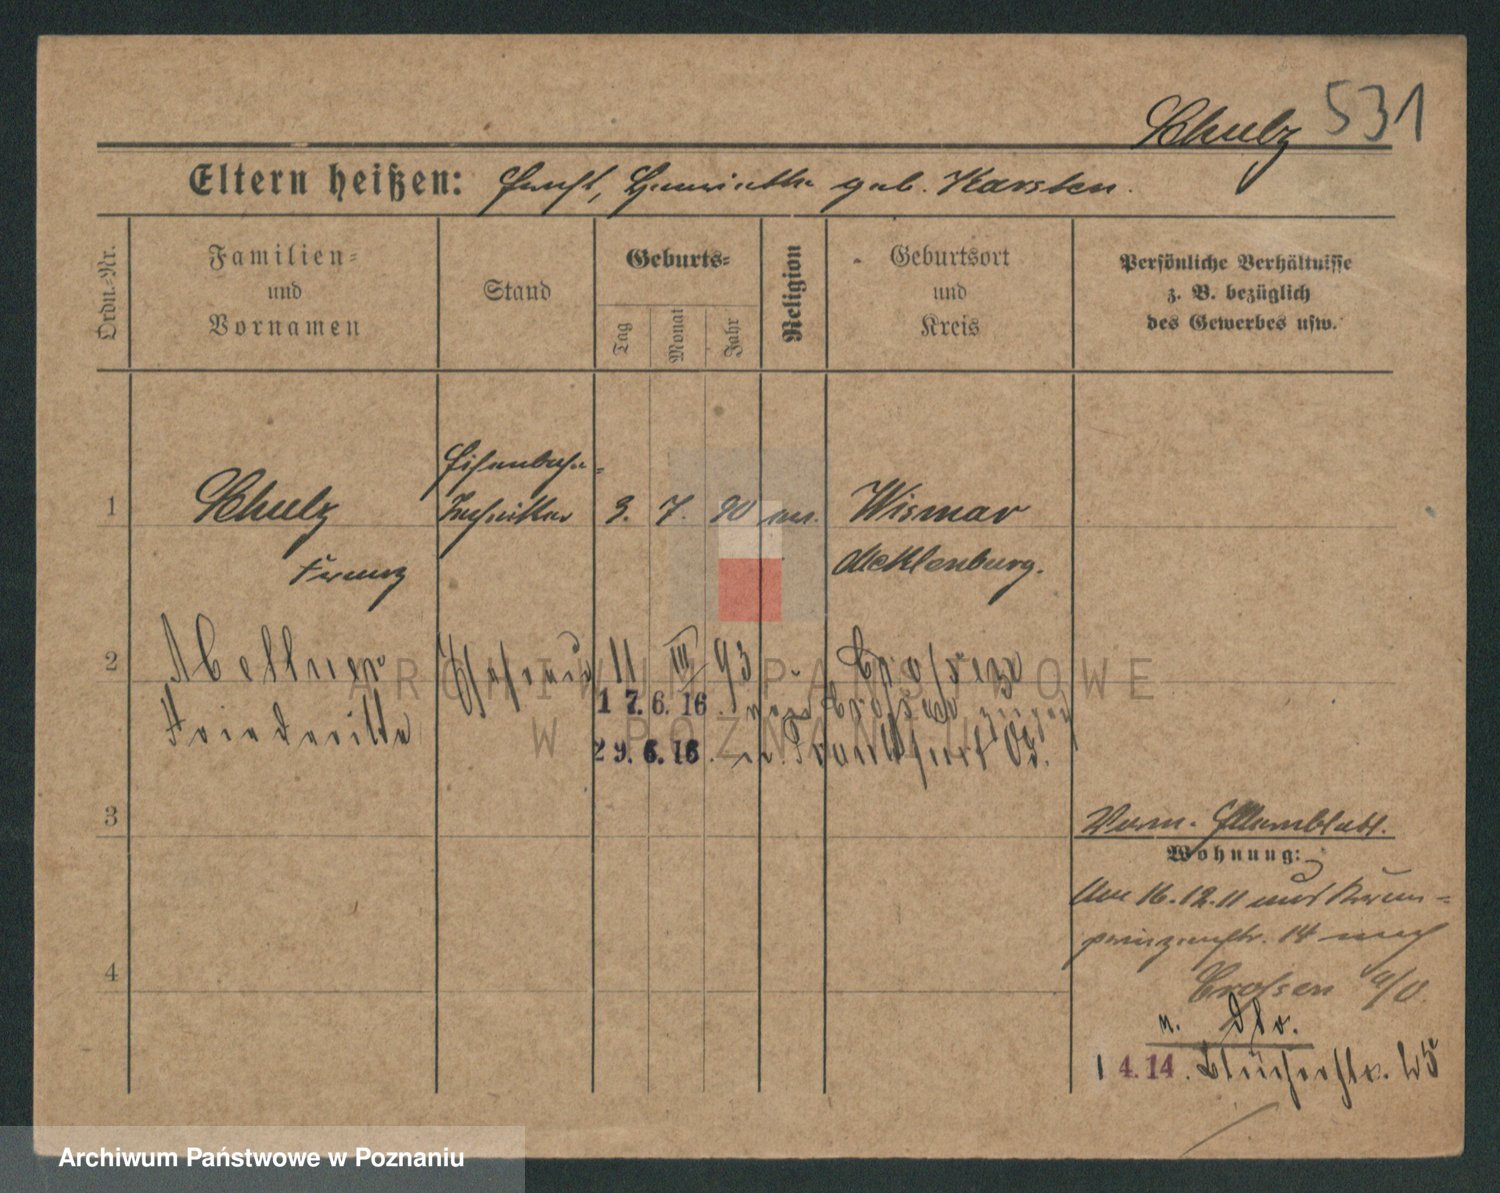 531
Schulz
Eltern heißen: Ernst, Henriette geb. Karsten.
Ordn.-Nr.
Familien-
und
Vornamen
Stand
Geburts-
Tag
Monat
Jahr
Religion
Geburtsort
und
Kreis
Persönliche Verhältnisse
z. B. bezüglich
des Gewerbes usw.
1
Schulz
Franz
Eisenbahn-
Techniker
3. 7. 90
Wismar
Mecklenburg.
2
Friederike
Ehefrau
11 III 93
Crossen
17.6.16. nach Crossen
29.6.16. n. Frankfurt O.
3
4
Wohnung:
Am 16.12.11 aus Kron-
prinzenstr. 14 nach
Crossen a/O.
n.
1 4.14. Blücherstr. 25
ARCHIWUM PAŃSTWOWE
W POZNANIU
Archiwum Państwowe w Poznaniu